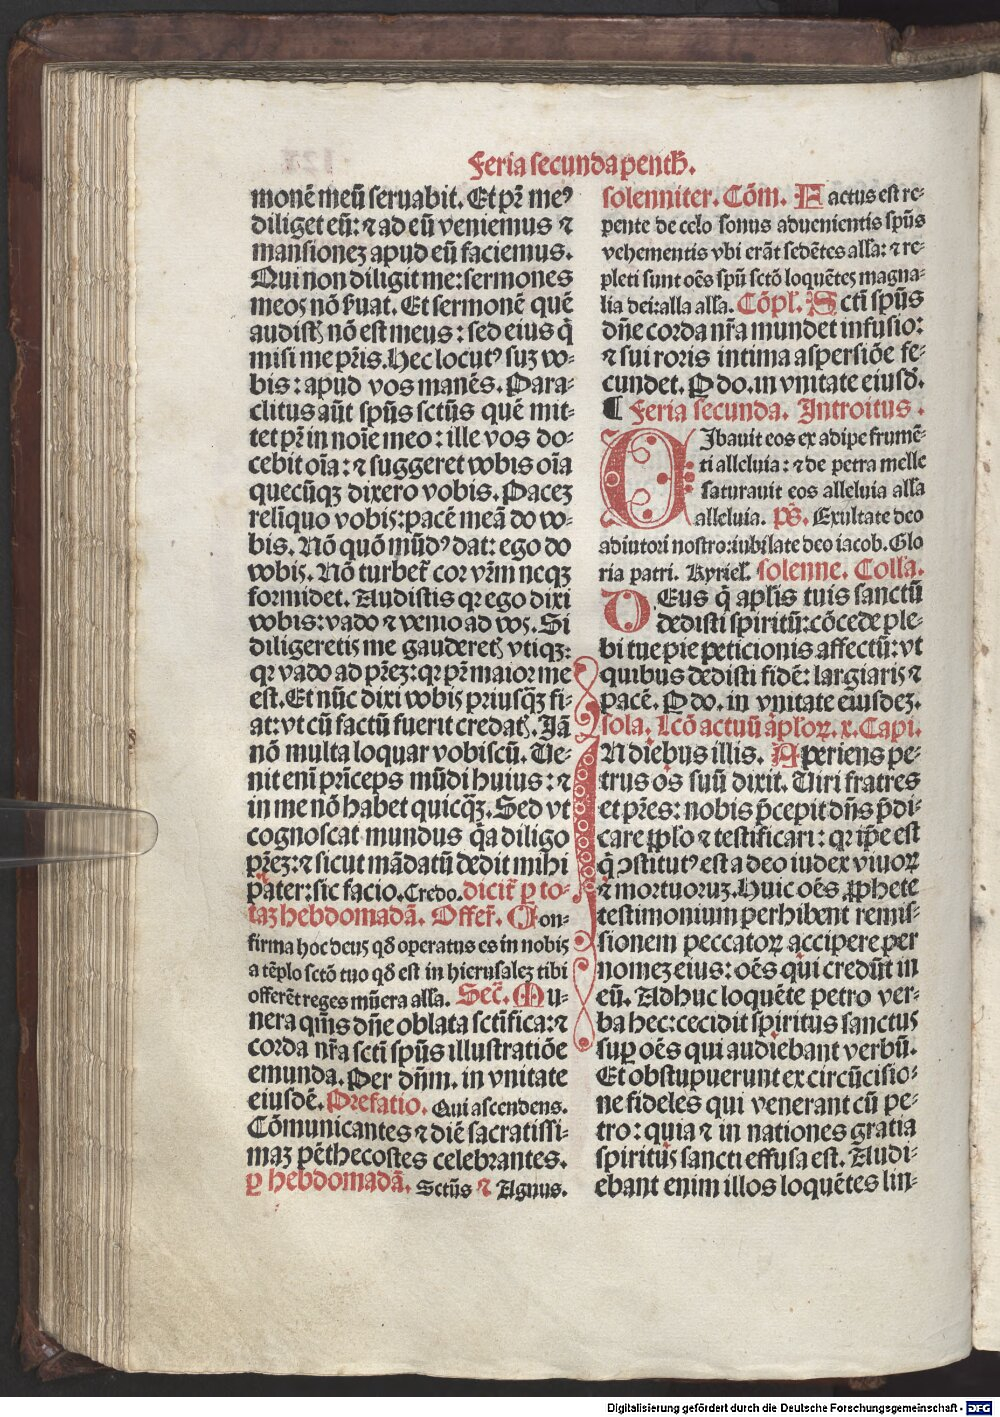 Feria secunda penth̃.
monē meū seruabit. Et pr̄ meꝰ
diliget eū: ⁊ ad eū veniemus ⁊
mansionez apud eū faciemus.
Qui non diligit me: sermones
meos nō ſuat. Et sermonē quē
audistꝭ nō est meus: sed eius q̄
misi me pr̄is. Hec locutꝰ suꝫ vo-
bis: apud vos manēs. Para-
clitus aūt spūs sctūs quē mit-
tet pr̄ in noīe meo: ille vos do-
cebit oīa: ⁊ suggeret vobis oīa
quecūqꝫ dixero vobis. Pacez
relīquo vobis: pacē meā do vo-
bis. Nō quō mūdꝰ dat: ego do
vobis. Nō turbet̄ cor vr̄m neqꝫ
formidet. Audistis qꝛ ego dixi
vobis: vado ⁊ venio ad vos. Si
diligeretis me gauderetꝭ vtiqꝫ:
qꝛ vado ad pr̄ez: qꝛ pr̄ maior me
est. Et nūc dixi vobis priusqꝫ̄ fi-
at: vt cū factū fuerit credatꝭ. Jā
nō multa loquar vobiscū. Ue-
nit enī pr̄iceps mūdi huius: ⁊
in me nō habet quicqꝫ̄. Sed vt
cognoscat mundus q̄a diligo
pr̄ez: ⁊ sicut mādatū dedit mihi
pater: sic facio. Credo. dicit̄ ꝑ to-
taz hebdomadā. Offer̄. Con-
firma hoc deus qd̄ operatus es in nobis
a tēplo sctō tuo qd̄ est in hierusalez tibi
offerēt reges mūera alla. Sec̄. Mu-
nera qūis dn̄e oblata sctīfica: ⁊
corda nr̄a sctī spūs illustratiōe
emunda. Per dn̄m. in vnitate
eiusdē. Prefatio. Qui ascendens.
Cōmunicantes ⁊ diē sacratissi-
maz pēthecostes celebrantes.
ꝑ hebdomadā. Sctūs ⁊ Agnus.
solenniter. Cōm. Factus est re-
pente de celo sonus aduenientis spūs
vehementis vbi erāt sedētes alla: ⁊ re-
pleti sunt oēs spū sctō loquētes magna-
lia dei: alla alla. Cōpl̄. Sctī spūs
dn̄e corda nr̄a mundet infusio:
⁊ sui roris intima aspersiōe fe-
cundet. P do. in vnitate eiusd̄.
¶ Feria secunda. Introitus.
Cibauit eos ex adipe frumē-
ti alleluia: ⁊ de petra melle
saturauit eos alleluia alla
alleluia. p̄s. Exultate deo
adiutori nostro: iubilate deo iacob. Glo
ria patri. Kyriel̄. solenne. Colla.
DEus q̄ aplis tuis sanctū
dedisti spiritū: cōcede ple-
bi tue pie peticionis affectū: vt
quibus dedisti fidē: largiaris ⁊
pacē. P do. in vnitate eiusdez.
sola. Lcō actuū aploꝝ. x. Capi.
IN diebus illis. Aperiens pe-
trus os suū dixit. Uiri fratres
et pr̄es: nobis p̄cepit dn̄s p̄di-
care pplo ⁊ testificari: qꝛ ip̄e est
q̄ ꝯstitutꝰ est a deo iudex viuoꝝ
⁊ mortuoruz. Huic oēs ꝓphete
testimonium perhibent remis-
sionem peccatoꝝ accipere per
nomez eius: oēs qui credūt in
eū. Adhuc loquēte petro ver-
ba hec: cecidit spiritus sanctus
suꝑ oēs qui audiebant verbū.
Et obstupuerunt ex circūcisio-
ne fideles qui venerant cū pe-
tro: quia ⁊ in nationes gratia
spiritus sancti effusa est. Audi-
ebant enim illos loquētes lin-
Digitalisierung gefördert durch die Deutsche Forschungsgemeinschaft - DFG